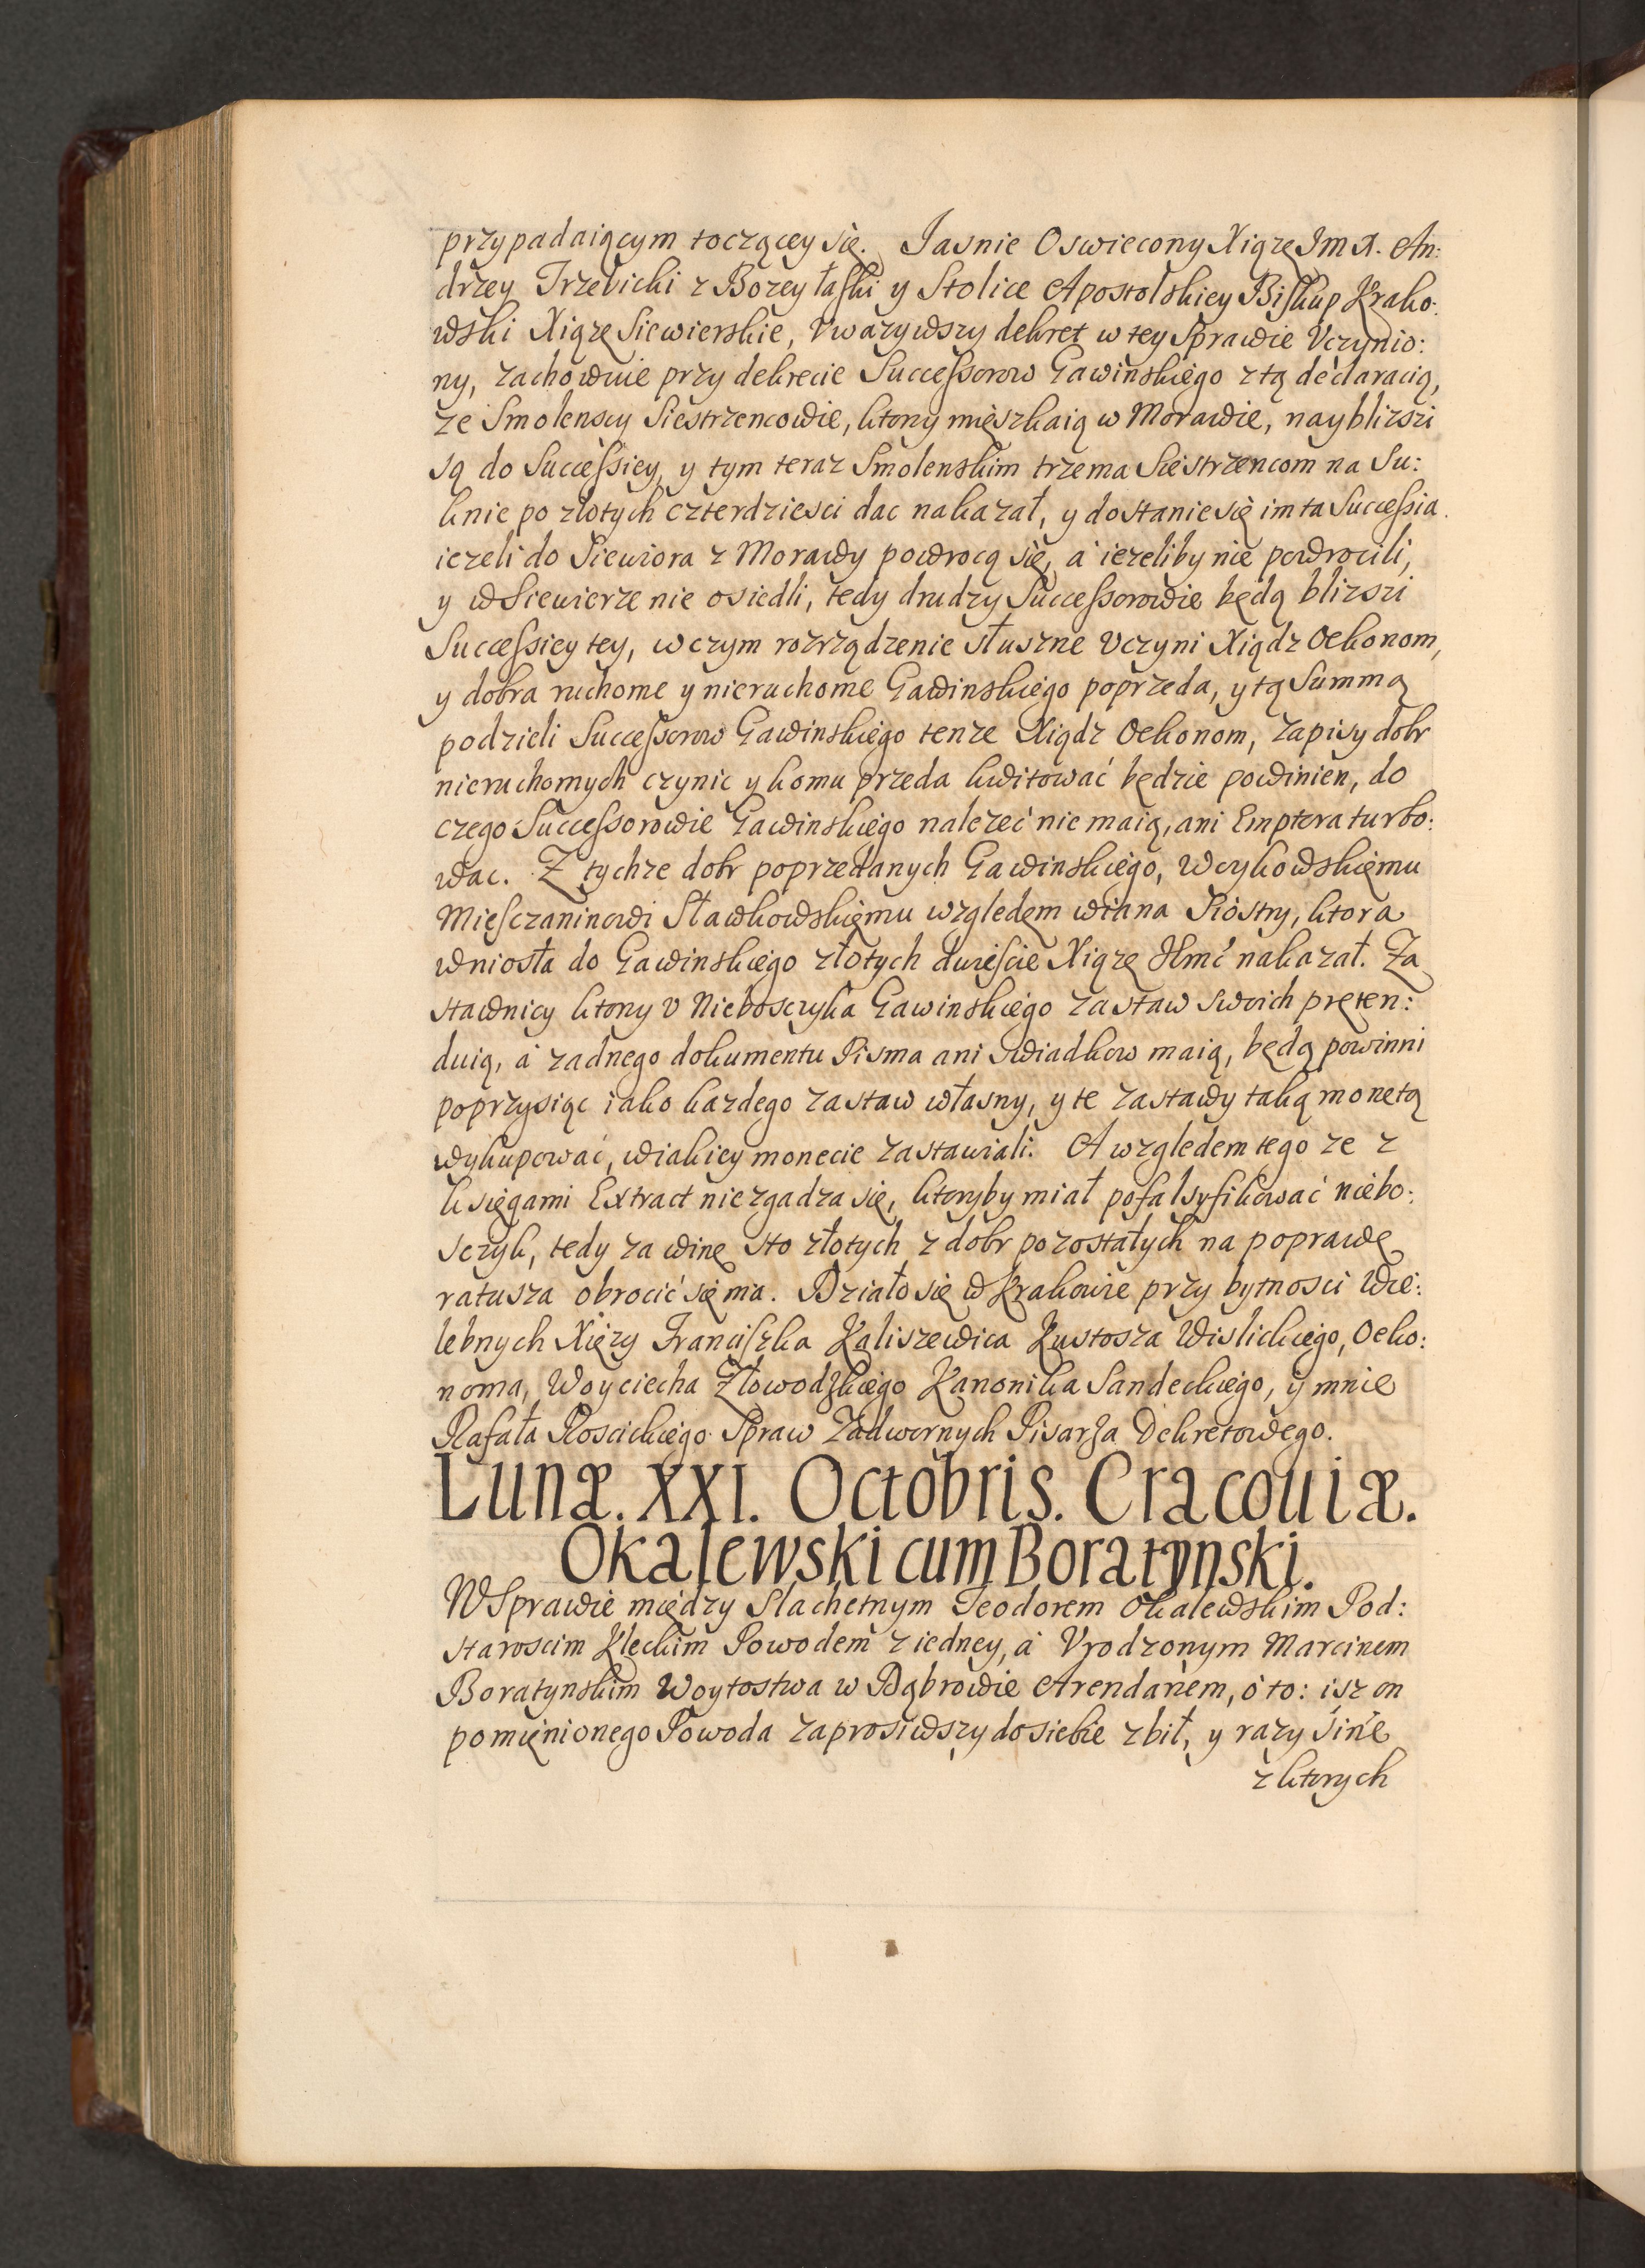 przypadaiącym toczącey się. Iasnie Oswiecony Xiąze Im X. An:
drzey Trzebicki z Bozey łaski y Stolice Apostolskiey Biskup Krako:
wski Xiąze Siewierskie, Vwazywszy dekret w tey Sprawie Vczynio:
ny, zachowuie przy dekrecie Successorow Gawinskiego z tą declaracią,
ze Smolenscy Siestrzencowie, ktory mięszkaią w Morawie, nayblizszi
są do Successiey, y tym teraz Smolenskim trzema Siestrzencom na Su:
knie po złotych czterdziesci dac nakazał, y dostanie się im ta Successia
iezeli do Siewiora z Morawy powrocą się, a iezeliby nie powrocili,
y w Siewierze nie osiedli, tedy drudzy Successorowie będą blizszi
Successiey tey, w czym rozrządzenie słuszne Vczyni Xiądz Oekonom,
y dobra ruchome y nieruchome Gawinskiego poprzeda, y tą Summą
podzieli Successorow Gawinskiego tenze Xiądz Oekonom, zapisy dobr
nieruchomych czynic y komu przeda kwitować będzie powinien, do
czego Successorowie Gawinskiego nalezeć nie maią, ani Emptora turbo:
wac. Z tychze dobr poprzedanych Gawinskiego, Wcykowskięmu
Mięsczaninowi Sławkowskięmu względem wiana Siostry, ktora
wniosła do Gawinskiego złotych dwieście Xiąze Jłmć nakazał. Za
stawnicy ktory v Niebosczyka Gawinskiego zastaw swoich pręten:
duią, a zadnego dokumentu Pisma ani swiadkow maią, będą powinni
poprzysiąc iako kazdego zastaw własny, y te zastawy taką monetą
wykupować, w iakiey monecie zastawiali. A względem tego ze z
księgami Extract niezgadza się, ktoryby miał pofalsyfikować niebo:
sczyk, tedy za winę sto złotych z dobr pozostałych na poprawę
ratusza obrocić się ma. Działo się w Krakowie przy bytnosci Wie:
lebnych Xięzy Franciszka Kaliszewica Kustosza Wislickiego, Oeko:
noma, Woyciecha Złowodzkiego Kanonika Sandeckiego, y mnie
Rafała Roscickiego Spraw Zadwornych Pisarza Dekretowego.
Lunæ. XXI. Octobris. Cracouiæ.
Okalewski cum Boratynski.
W Sprawie między Slachetnym Teodorem Okalewskim Pod:
staroscim Kleckim Powodem z iedney, a Vrodzonym Marcinem
Boratynskim Woytostwa w Dąbrowie Arendarzem, o to: isz on
pomięnionego Powoda zaprosiwszy do siebie zbił, y razy sine
z ktorych